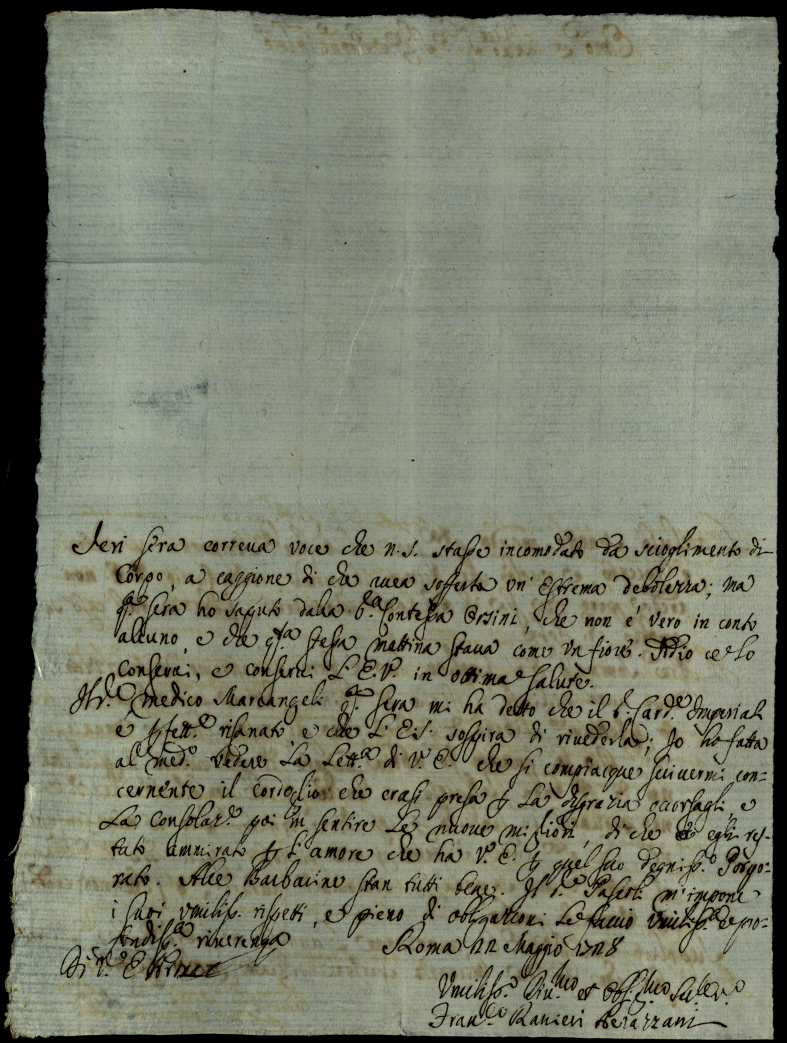 Ieri sera correua voce che N. S. stasse incomodato da scioglimento di
Corpo, a caggione di che auea sofferta un' estrema debolezza; ma
q.ta sera ho saputo dalla S.a Contessa Orsini, che non è vero in conto
alcuno, e che q.ta stessa mattina staua come un fiore. Iddio ce lo
conserui, e conserui l'E. V. in ottima salute.
Il S.e Medico Marcangeli q.ta sera mi ha detto che il S. Card.e Imperiali
è p fett.e risanato, e che l'E. S. sospira di riuederla; Io ho fatta
al med.o vedere la Lett.a di V. E. che si compiacque scriuermi con=
cernente il cordoglio che erasi presa p la disgrazia occorsagli e
la consolaz.e poi in sentire le nuoue migliori, di che egli res=
tato ammirato p l'amore che ha V. E. p quel suo degniss.o Porpo=
rato. Alle Barbarine stan tutti bene. Il S.e Pascoli m'impone
i suoi umiliss. rispetti, e pieno di obligazioni le faccio umiliss.a e pro=
fondiss.a riuerenza Roma 22 Maggio 1728
Di V.a E
Umiliss.o et Obl.mo Se.re V.o
Fran.co Ranieri